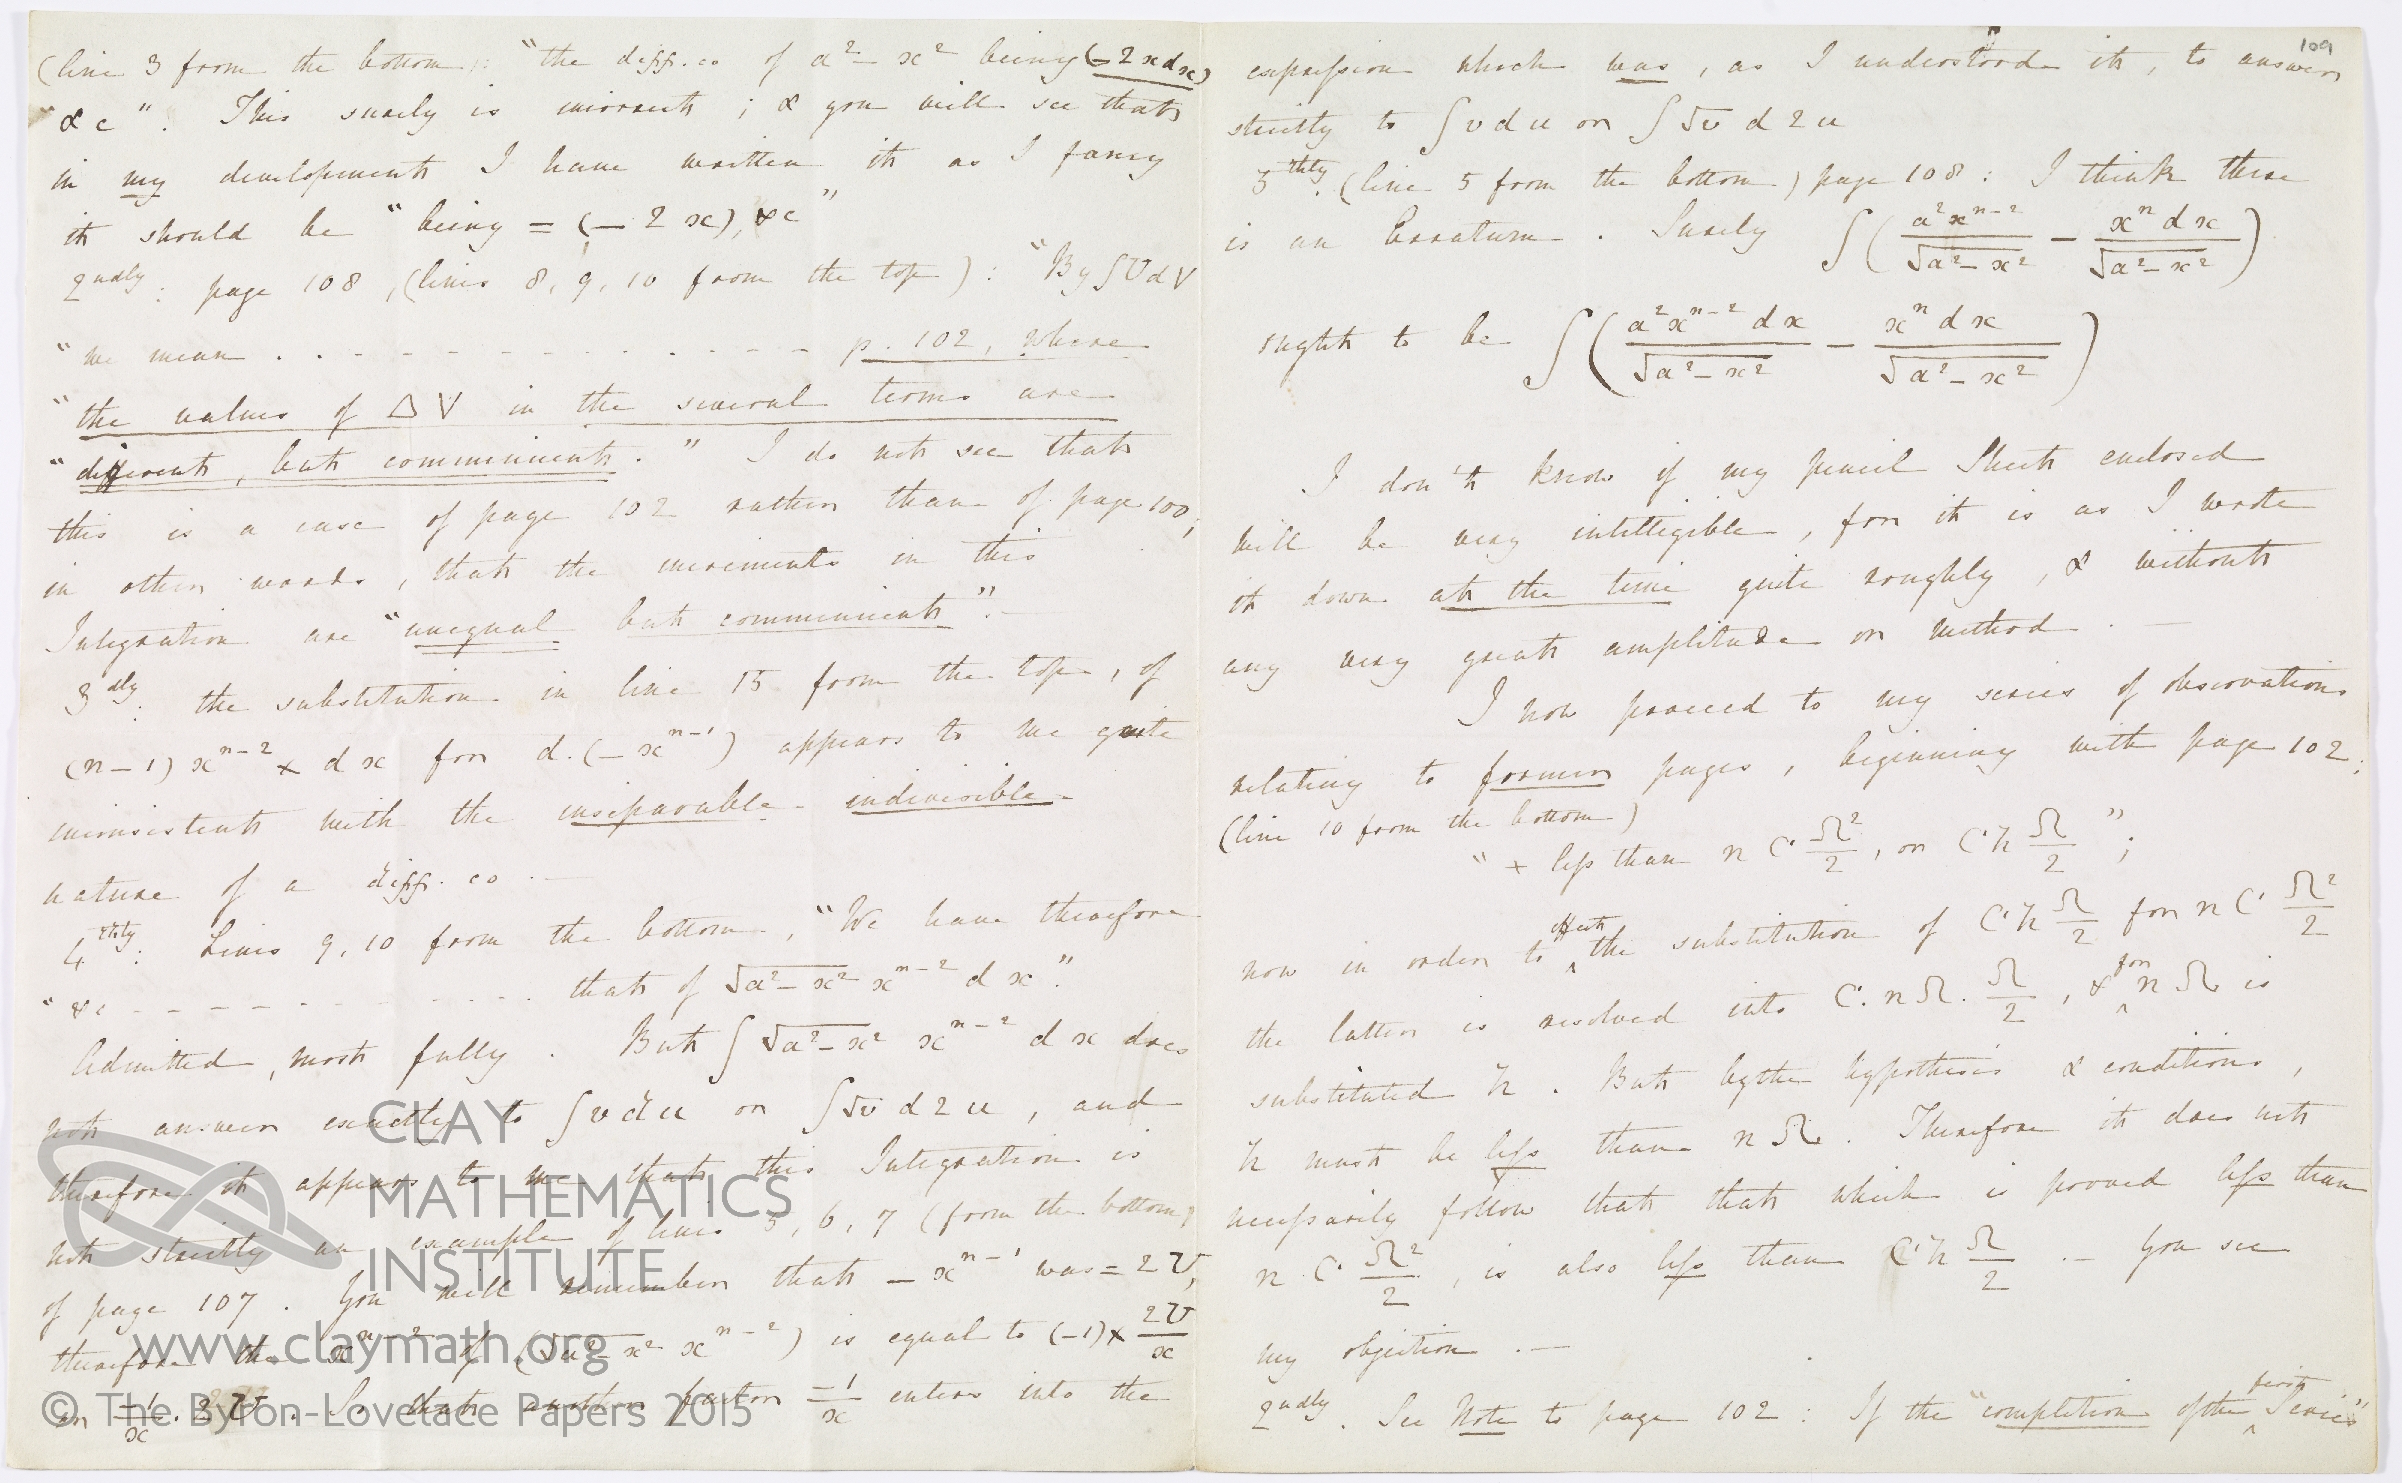 (line 3 from the bottom): "the diff. co of a² - x² being (- 2xdx)
"&c". This surely is incorrect; & you will see that
in my development I have written it as I fancy
it should be "being = (- 2x), &c"
2ndly: page 108, (lines 8, 9, 10 from the top): "By ∫UdV
"we mean . . - - - - - - - - - - - p. 102, where
"the values of ΔV in the several terms are
"different, but comminuent." I do not see that
this is a case of page 102 rather than of page 100;
in other words, that the increments in this
Integration are "unequal but comminuent". -
3dly: the substitution in line 15 from the top, of
(n - 1) xⁿ⁻² × dx for d.(- xⁿ⁻¹) appears to me quite
inconsistent with the inseparable - indivisible -
nature of a diff. co . -
4thly: Lines 9, 10 from the bottom, "We have therefore
"&c - - - - - - - - - - - that of √a² - x² xⁿ⁻² dx."
Admitted, most fully. But ∫√a² - x² xⁿ⁻² dx does
not answer exactly to ∫vdu or ∫√v d2u, and
therefore it appears to me that this Integration is
not strictly an example of lines 5, 6, 7 (from the bottom)
of page 107. You will remember that - xⁿ⁻¹ was = 2U,
therefore the xⁿ⁻² of (√a² - x² xⁿ⁻²) is equal to (-1) × 2U/x
or -1/x . 2U. So that another factor -1/x enters into the
109
expression which was, as I understood it, to answer
strictly to ∫vdu or ∫√v d2u
5thly. (line 5 from the bottom) page 108: I think there
is an Erratum. Surely ∫(a²xⁿ⁻²/√a² - x² - xⁿdx/√a² - x²)
ought to be ∫(a²xⁿ⁻²dx/√a² - x² - xⁿdx/√a² - x²)
I don't know if my pencil Sheet enclosed
will be very intelligible, for it is as I wrote
it down at the time quite roughly, & without
any very great amplitude or method. -
I now proceed to my series of observations
relating to former pages, beginning with page 102;
(line 10 from the bottom)
"+ less than n C Ω²/2, or C h Ω/2";
now in order to effect the substitution of C h Ω/2 for n C Ω²/2
the latter is resolved into C. n Ω. Ω/2, & for n Ω is
substituted h. But by the hypothesis & conditions,
h must be less than n Ω. Therefore it does not
necessarily follow that that which is proved less than
n C Ω²/2, is also less than C h Ω/2. - You see
my objection. -
2ndly. See Note to page 102: If the "completion of the first Series"
CLAY
MATHEMATICS
INSTITUTE
www.claymath.org
© The Byron-Lovelace Papers 2015